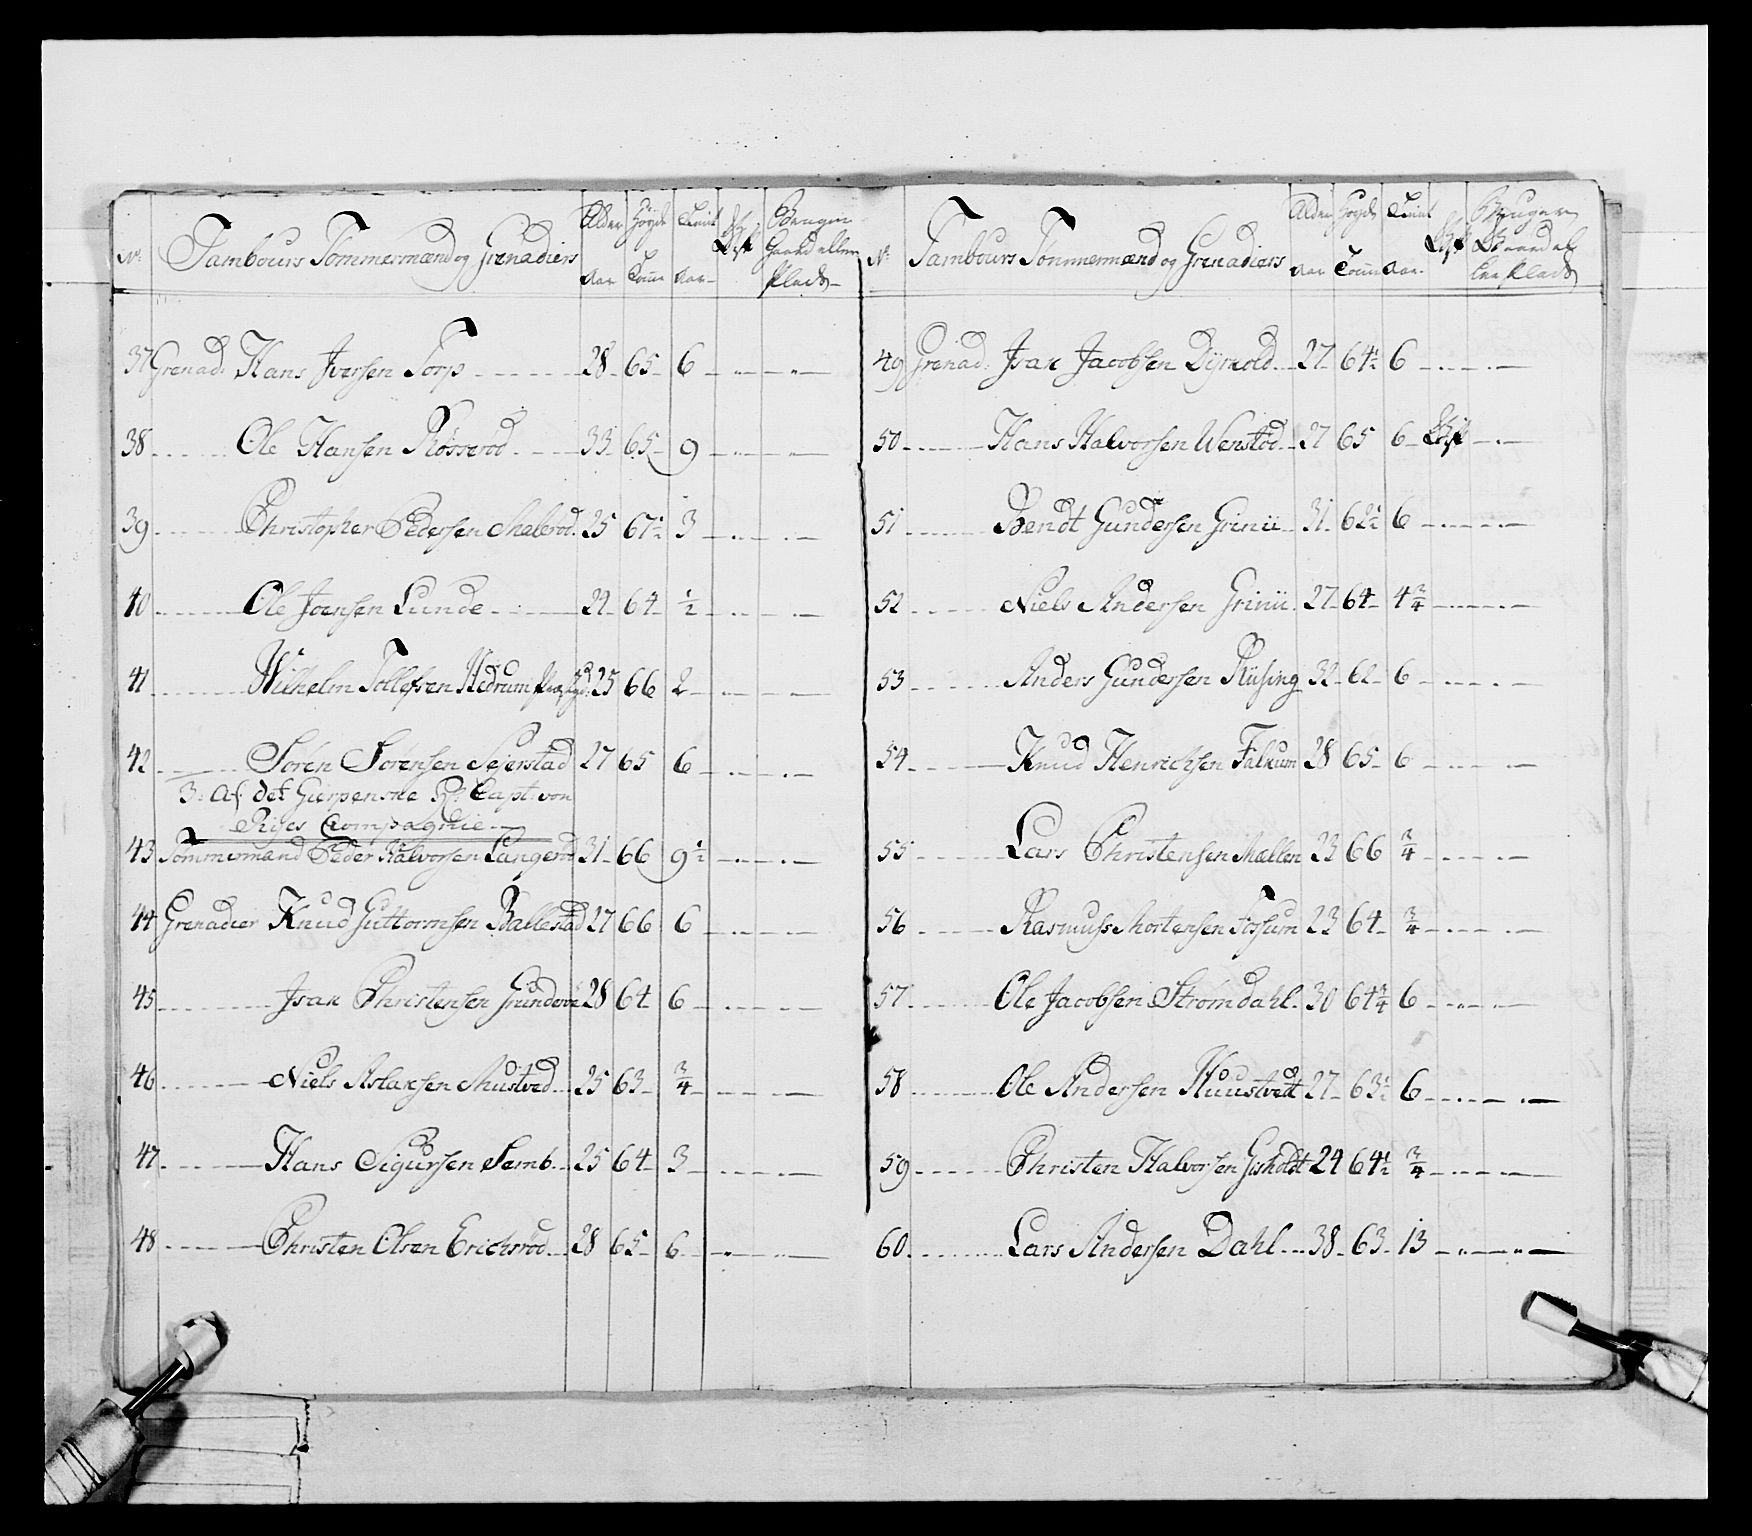 No. Tambours Tømmermænd og Grenadiers Alder Aar Høyde Tomme Tienist Aar Gift Gaard eller Plads
37 Grenad: Hans Iversen Torp 28 65 6
38 Ole Hansen Røsserød 33 65 9
39 Christopher Pedersen Malerød 25 67½ 3
40 Ole Joensen Lunde 24 64 ½
41 Wilhelm Tollefsen Hedrum 25 66 2
42 Søren Sørensen Seierstad 27 65 6
3: Af det Gierpenske Capt: von
Rÿes Compagnie
43 Tømmermand Peder Halvorsen Langerød 31 66 9½
44 Grenadier Knud Guttormsen Ballestad 27 66 6
45 Isak Christensen 28 64 6
46 Niels Aslaksen Mustved 25 63 ¾
47 Hans Sigursen Semb 25 64 3
48 Christen Olsen Erichsrød 28 65 6
No. Tambours Tømmermænd og Grenadiers Alder Aar Høyde Tomme Tienist Aar Gift Bruger Gaard el
ler Plads
49 Grenad: Isak Jacobsen 27 64½ 6
50 Hans Halvorsen Wenstød 27 65 6 Gift
51 Bendt Gundersen Grinii 31 62½ 6
52 Niels Andersen Grinii 27 64 4¾
53 Anders Gundersen Riising 32 62 6
54 Knud Henrichsen Falkum 28 65 6
55 Lars Christensen Mællen 23 66 ¾
56 Rasmuss Mortensen Fossum 23 64 ¾
57 Ole Jacobsen Strømdahl 30 64¾ 6
58 Ole Andersen Huustvedt 27 63½ 6
59 Christen Halvorsen Gisholdt 24 64½ ¾
60 Lars Andersen Dahl 38 63 13